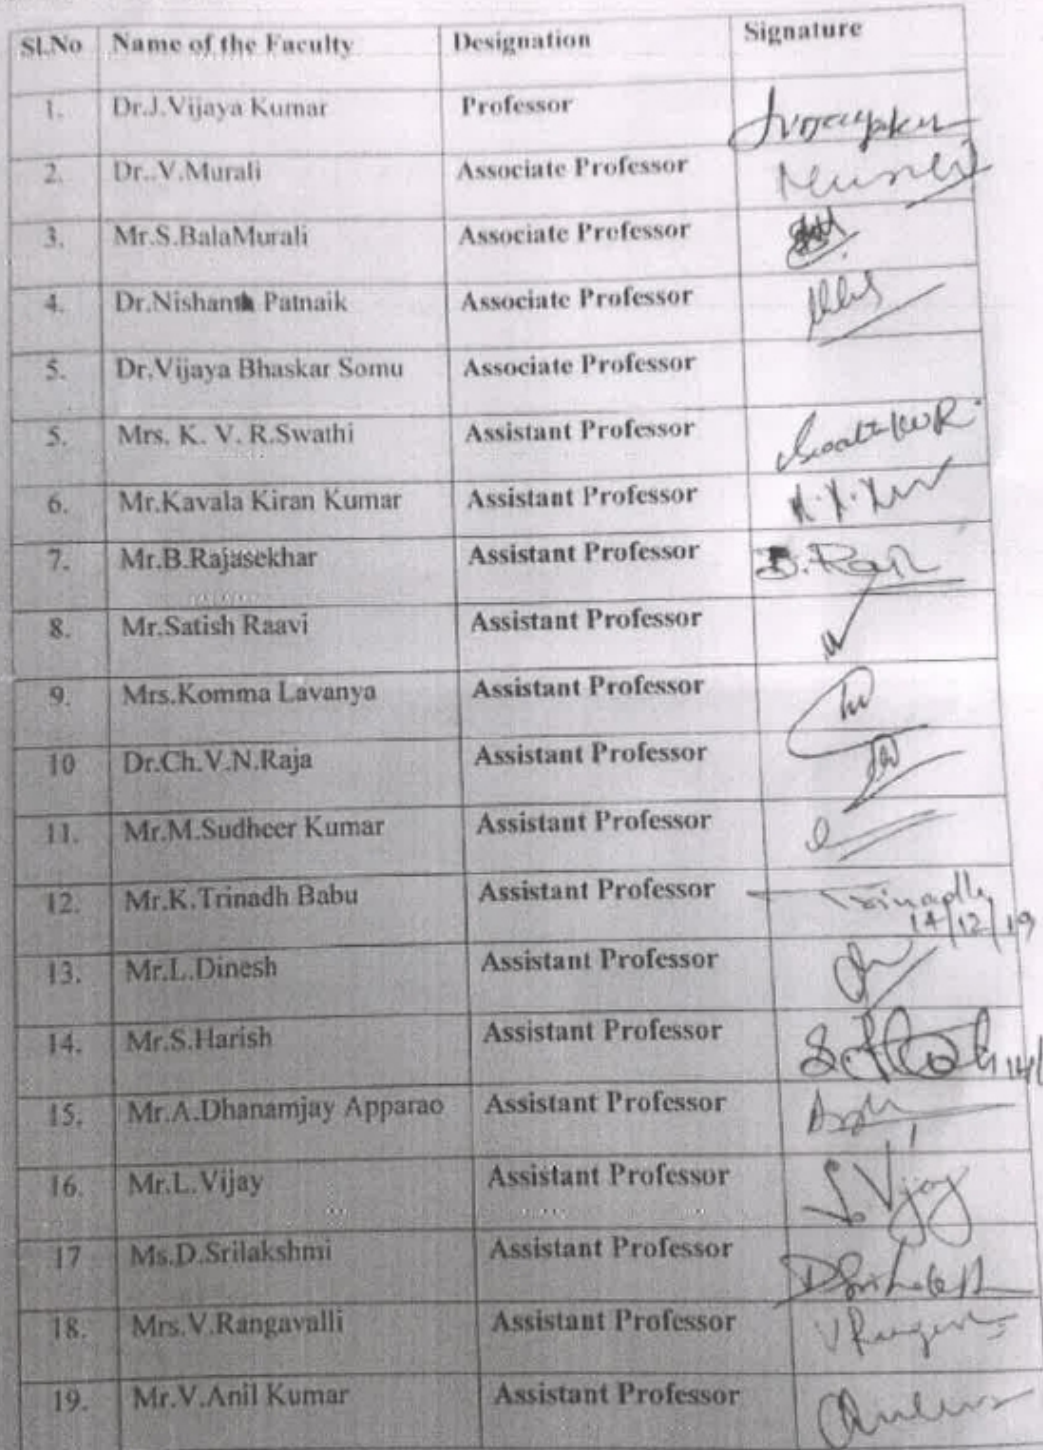 Sl.No Name of the Faculty Designation Signature
1. Dr.J.Vijaya Kumar Professor
2. Dr..V.Murali Associate Professor
3. Mr.S.BalaMurali Associate Professor
4. Dr.Nishanth Patnaik Associate Professor
5. Dr.Vijaya Bhaskar Somu Associate Professor
5. Mrs. K. V. R.Swathi Assistant Professor
6. Mr.Kavala Kiran Kumar Assistant Professor
7. Mr.B.Rajasekhar Assistant Professor
8. Mr.Satish Raavi Assistant Professor
9. Mrs.Komma Lavanya Assistant Professor
10 Dr.Ch.V.N.Raja Assistant Professor
11. Mr.M.Sudheer Kumar Assistant Professor
12. Mr.K.Trinadh Babu Assistant Professor Trinadh
14/12/19
13. Mr.L.Dinesh Assistant Professor
14. Mr.S.Harish Assistant Professor
15. Mr.A.Dhanamjay Apparao Assistant Professor
16. Mr.L.Vijay Assistant Professor L. Vijay
17 Ms.D.Srilakshmi Assistant Professor
18. Mrs.V.Rangavalli Assistant Professor
19. Mr.V.Anil Kumar Assistant Professor